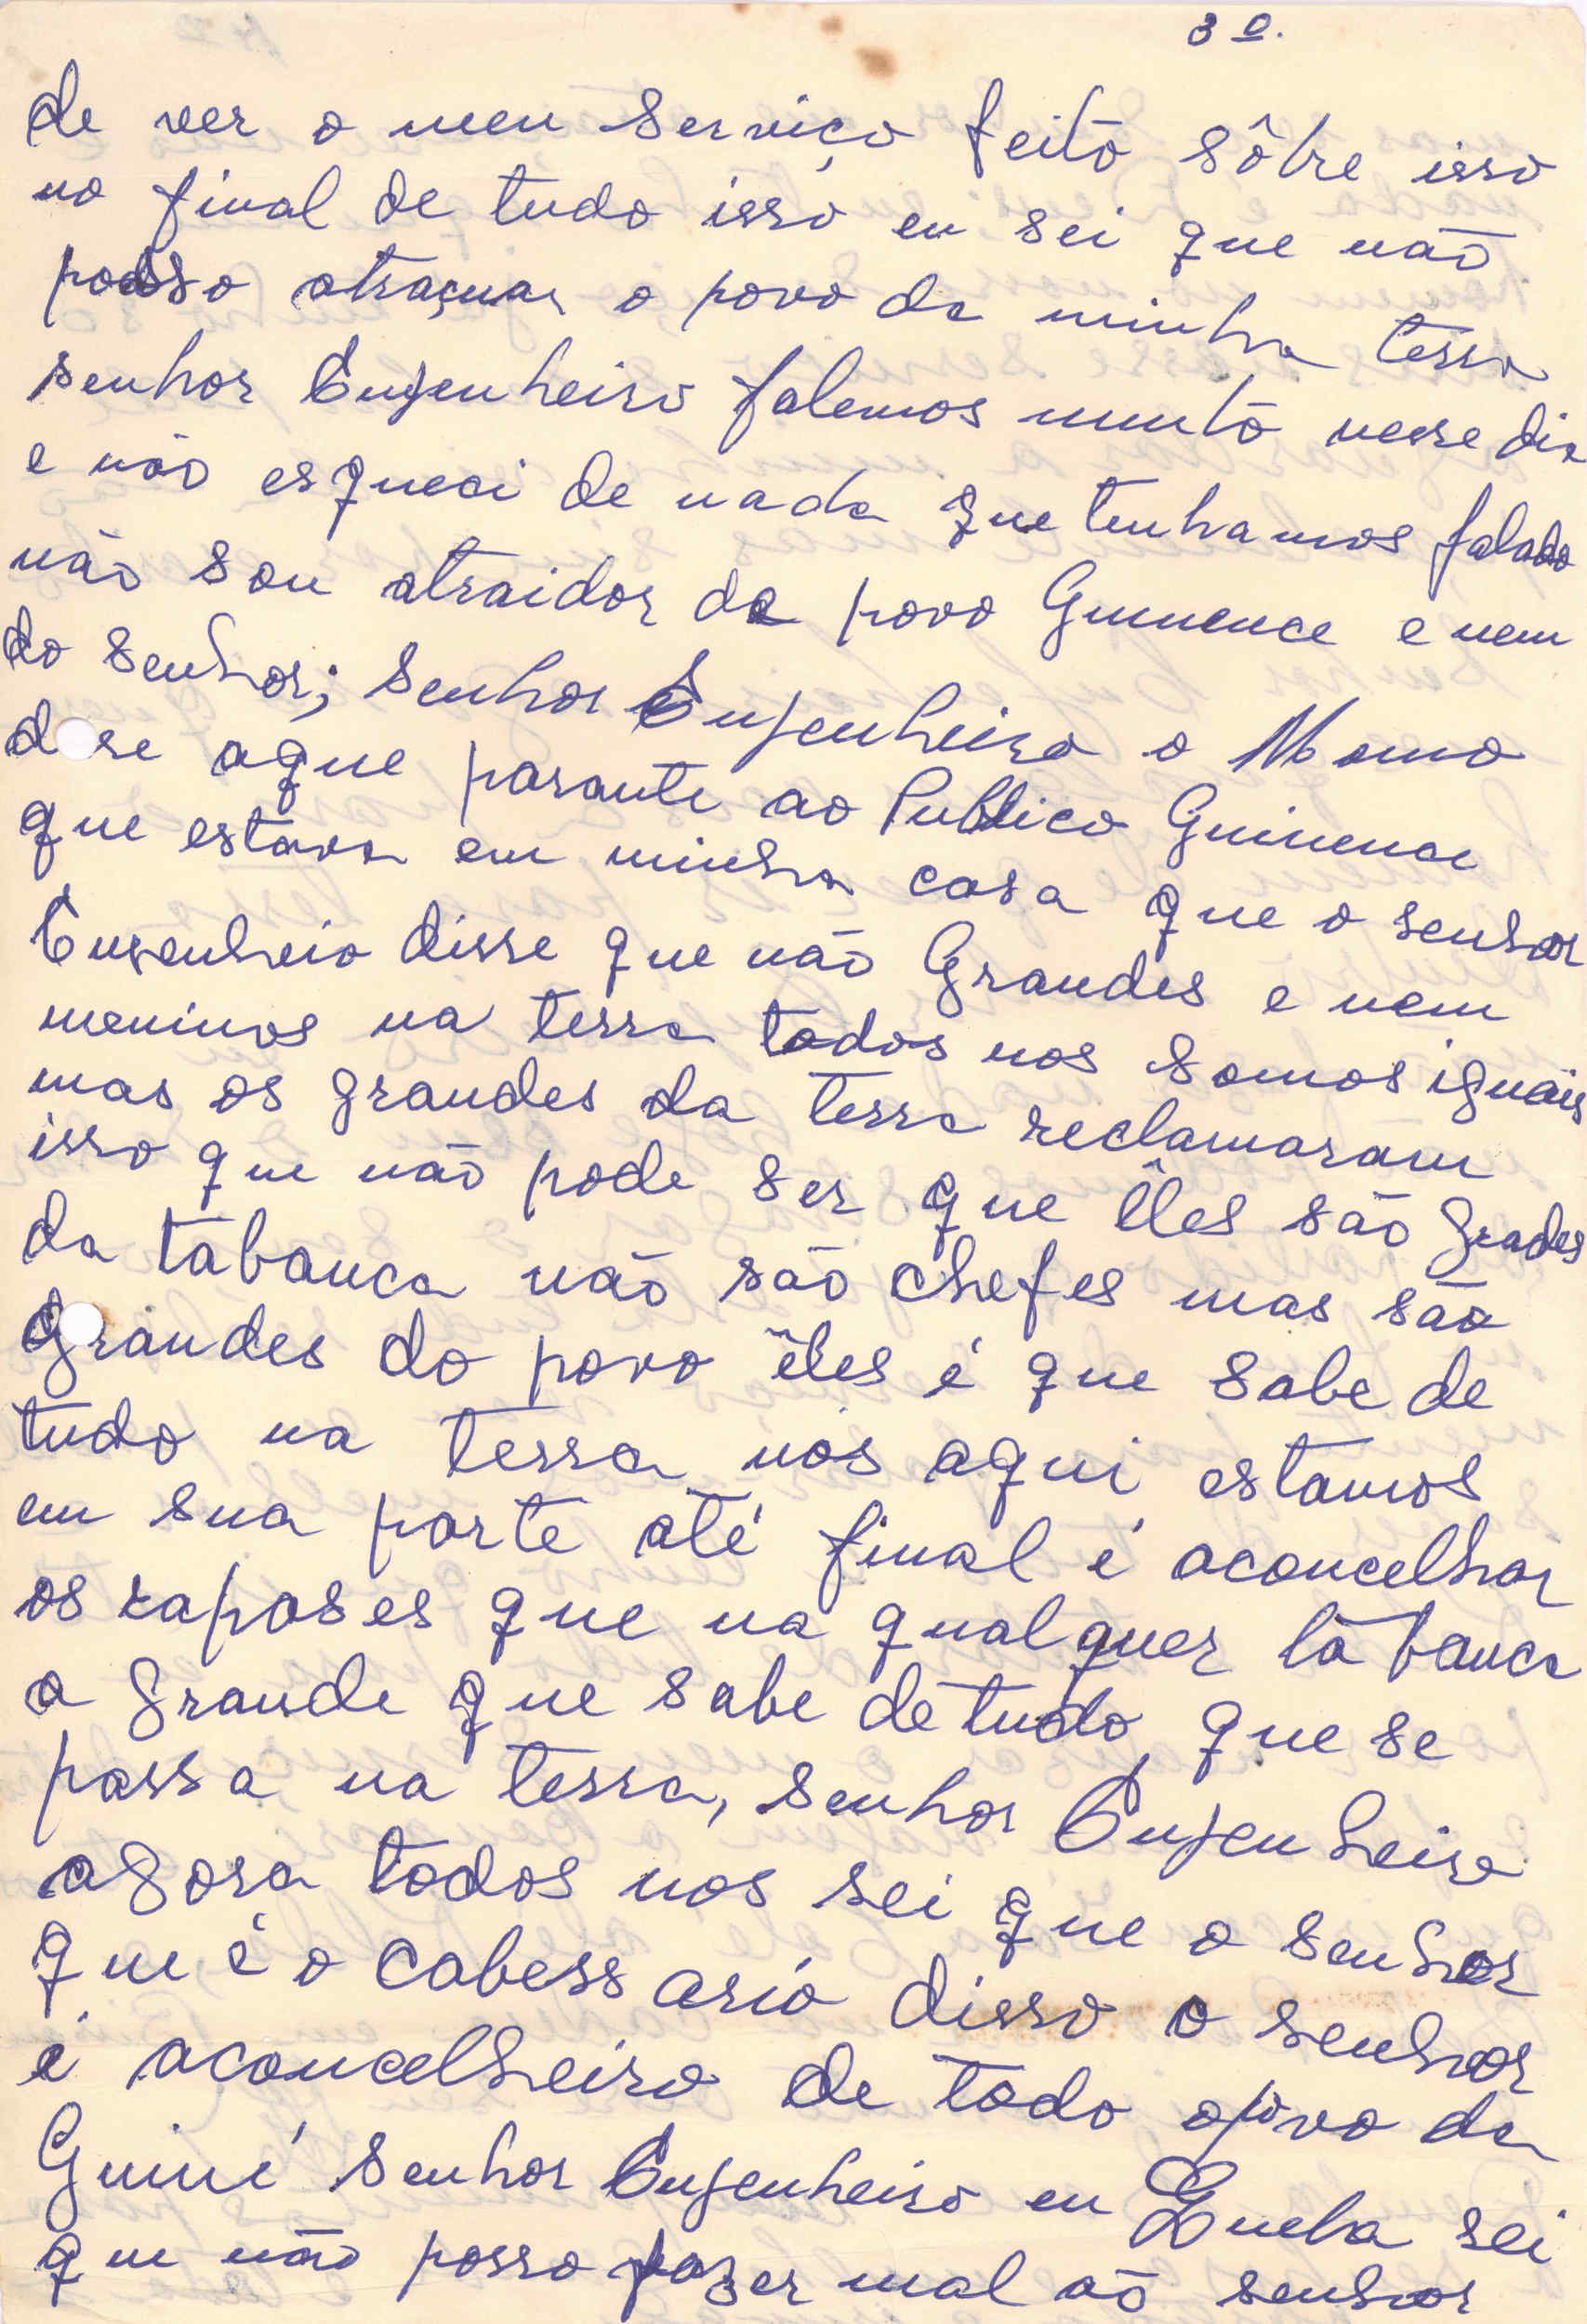 3º.
de ver o meu serviço feito sôbre isso
no final de tudo isso eu sei que não
posso atraçuar o povo da minha terra
senhor Engenheiro falemos munto nesse dia
e não esqueci de nada que tenhamos falado
não sou atraidor do povo Guinence e nem
do senhor; Senhor Engenheiro o Momo
d se aque parante ao Publico Guinence
que estava em minha casa que o senhor
Engenheio disse que não Grandes e nem
meninos na terra todos nos somos iguais
mas os grandes da terra reclamaram
isso que não pode ser que êles são Grades
da tabanca não são chefes mas são
Grandes do povo êles é que sabe de
tudo na terra nós aqui estamos
em sua parte até final é aconcelhar
os rapases que na qualquer tabanca
a grande que sabe de tudo que se
passa na terra, senhor Engenheiro
agora todos nos sei que o senhor
que é o cabessario disso o senhor
é aconcelheiro de todo o povo da
Guiné Senhor Engenheiro eu Zueba sei
que não posso fazer mal aõ senhor